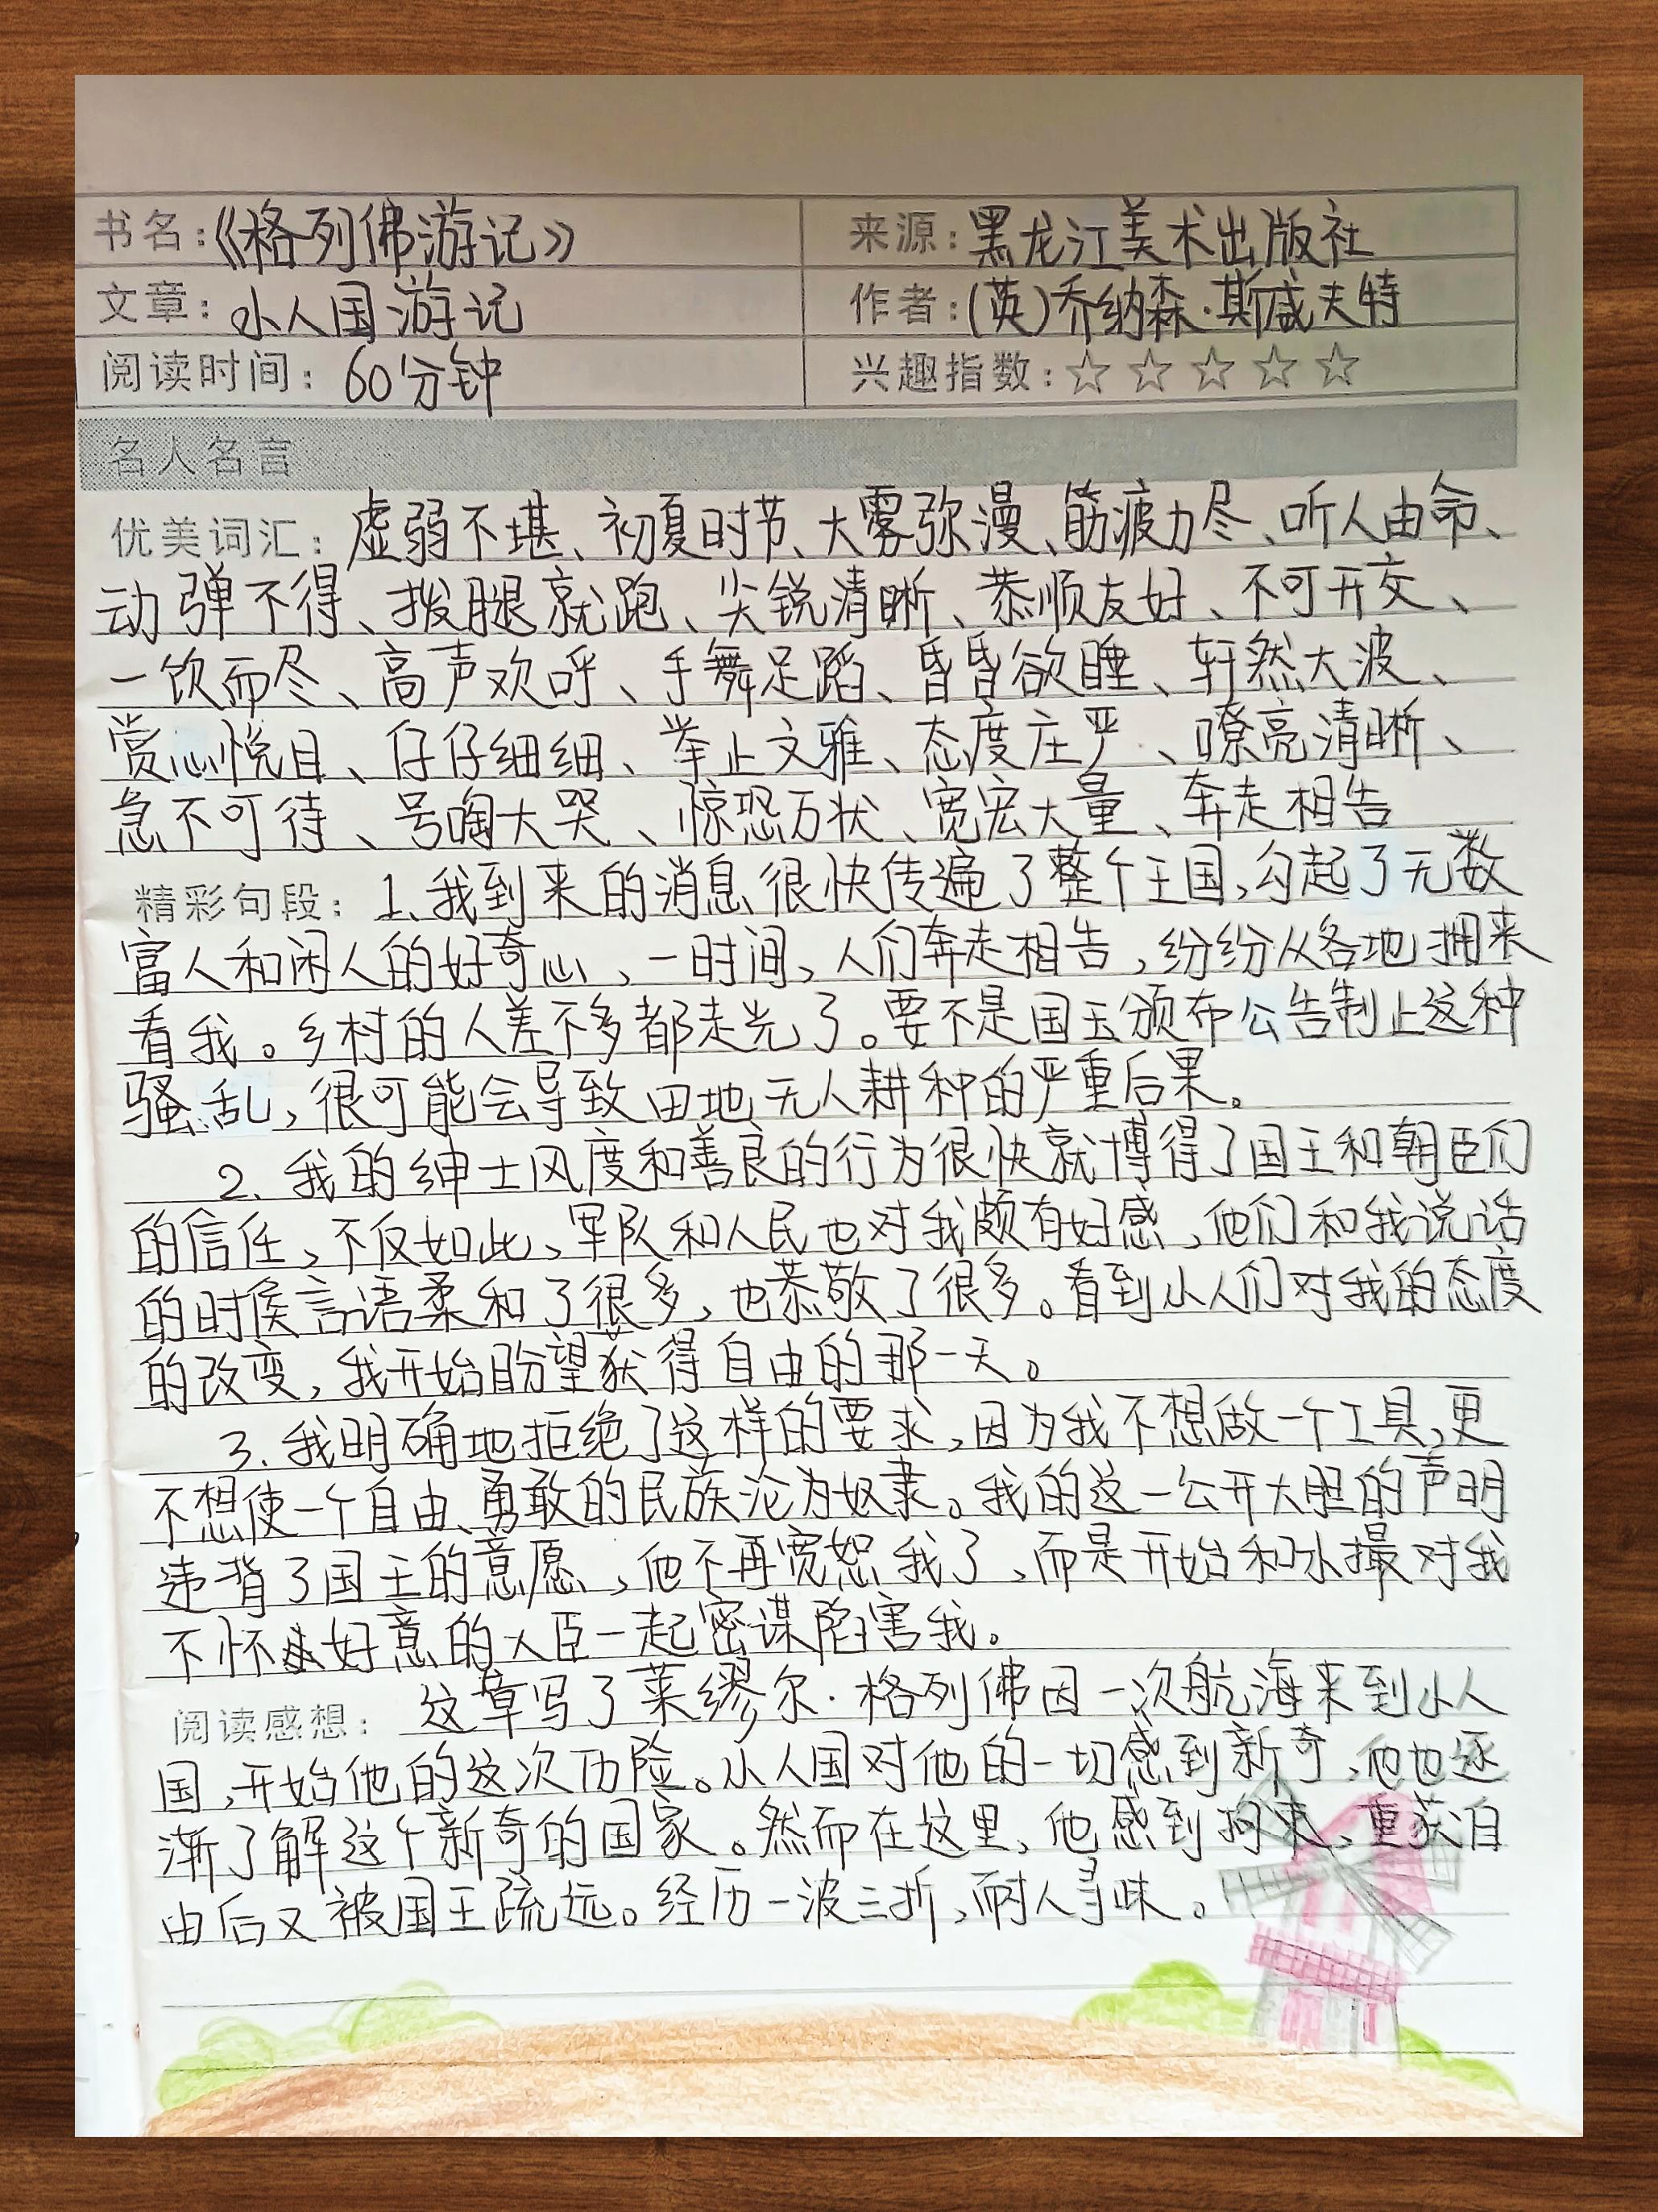 书名：《格列佛游记》 来源：黑龙江美术出版社
文章：小人国游记 作者：(英)乔纳森·斯威夫特
阅读时间：60分钟 兴趣指数：☆☆☆☆☆
名人名言
优美词汇：虚弱不堪、初夏时节、大雾弥漫、筋疲力尽、听人由命、
动弹不得、拨腿就跑、尖锐清晰、恭顺友好、不可开交、
一饮而尽、高声欢呼、手舞足蹈、昏昏欲睡、轩然大波、
赏心悦目、仔仔细细、举止文雅、态度庄严、嘹亮清晰、
急不可待、号啕大哭、惊恐万状、宽宏大量、奔走相告
精彩句段：1、我到来的消息很快传遍了整个王国，勾起了无数
富人和闲人的好奇心，一时间，人们奔走相告，纷纷从各地拥来
看我。乡村的人差不多都走光了。要不是国王颁布公告制止这种
骚乱，很可能会导致田地无人耕种的严重后果。
2、我的绅士风度和善良的行为很快就博得了国王和朝臣们
的信任，不仅如此，军队和人民也对我颇有好感，他们和我说话
的时候言语柔和了很多，也恭敬了很多。看到小人们对我的态度
的改变，我开始盼望获得自由的那一天。
3、我明确地拒绝了这样的要求，因为我不想做一个工具，更
不想使一个自由、勇敢的民族沦为奴隶。我的这一公开大胆的声明
违背了国王的意愿，他不再宽恕我了，而是开始和小撮对我
不怀好意的大臣一起密谋陷害我。
阅读感想：这章写了莱缪尔·格列佛因一次航海来到小人
国，开始他的这次历险。小人国对他的一切感到新奇，他也逐
渐了解这个新奇的国家。然而在这里，他感到拘束，重获自
由后又被国王疏远。经历一波三折，耐人寻味。